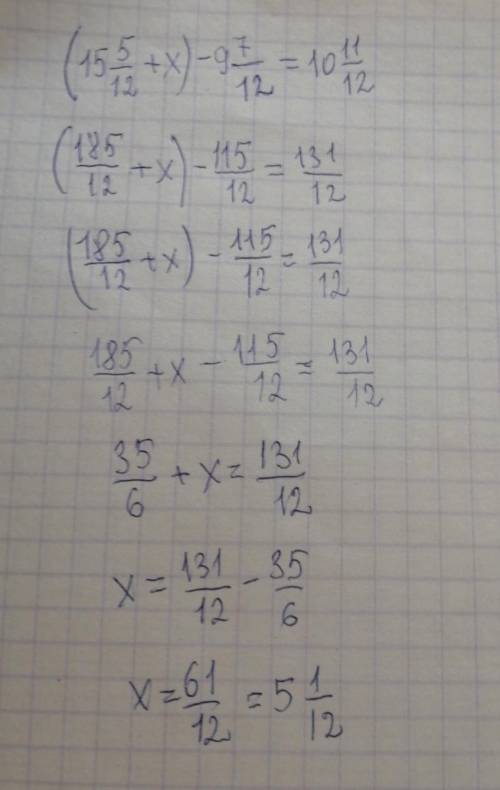 (15 5/12 + x) - 9 7/12 = 10 11/12
(185/12 + x) - 115/12 = 131/12
(185/12 + x) - 115/12 = 131/12
185/12 + x - 115/12 = 131/12
35/6 + x = 131/12
x = 131/12 - 35/6
x = 61/12 = 5 1/12